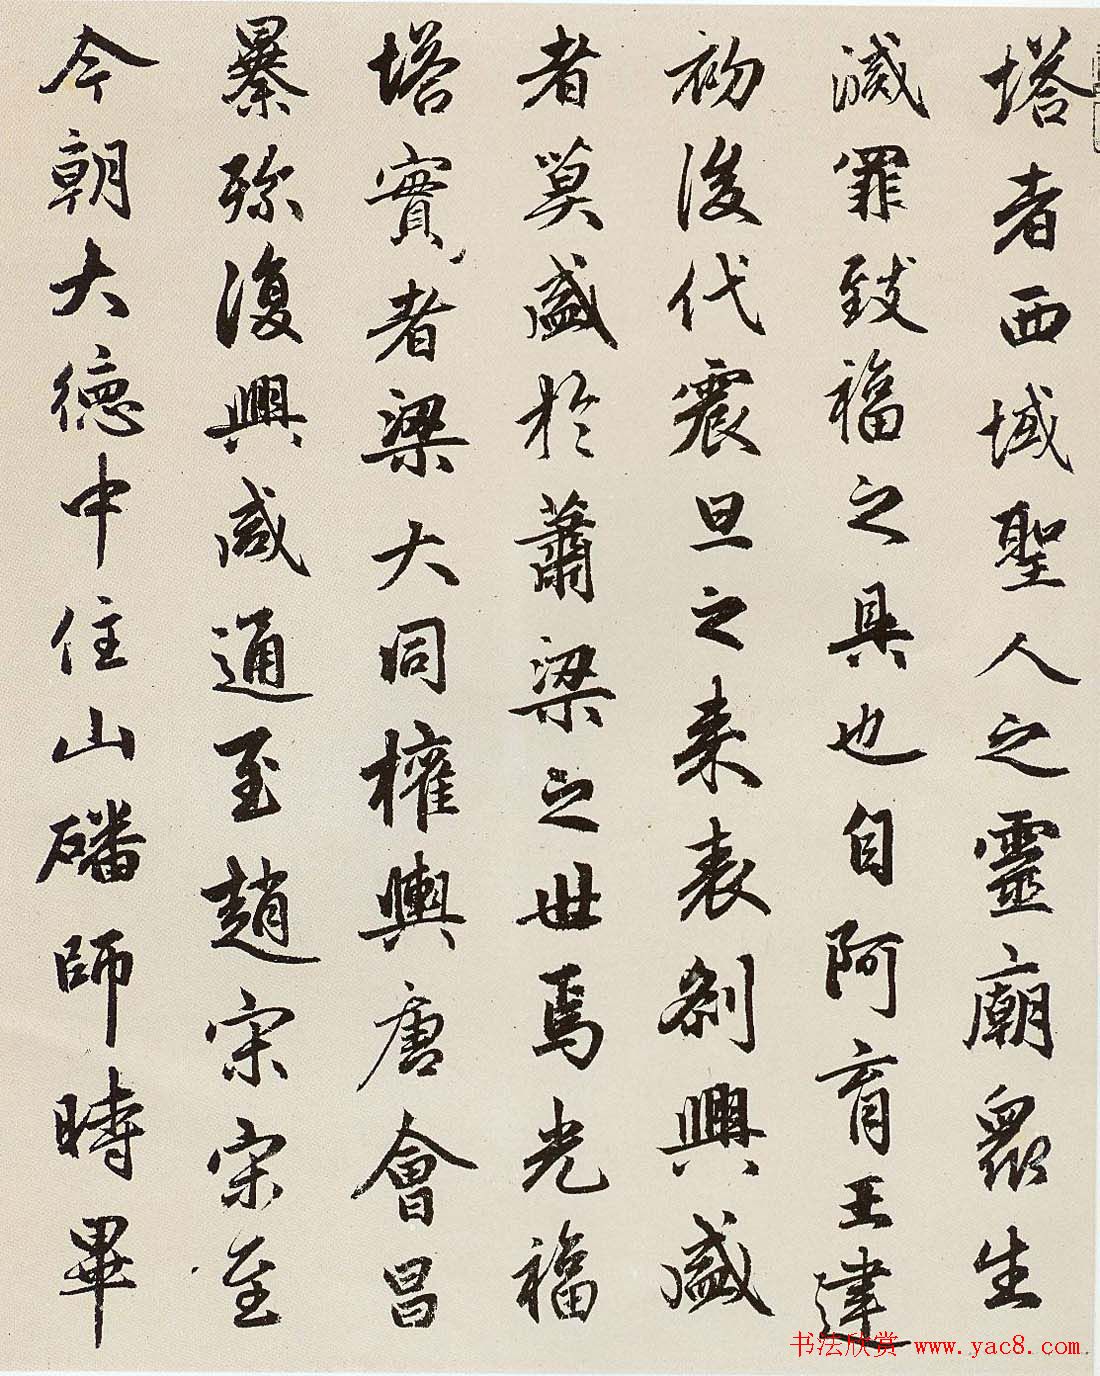 塔者西域聖人之靈廟衆生
滅罪致福之具也自阿育王建
初後代震旦之来表刹興盛
者莫盛於蕭梁之世焉光福
塔實者梁大同權輿唐會昌
㬥弥復興咸通至趙宋宋至
今朝大德中住山磻師時畢
书法欣赏 www.yac8.com